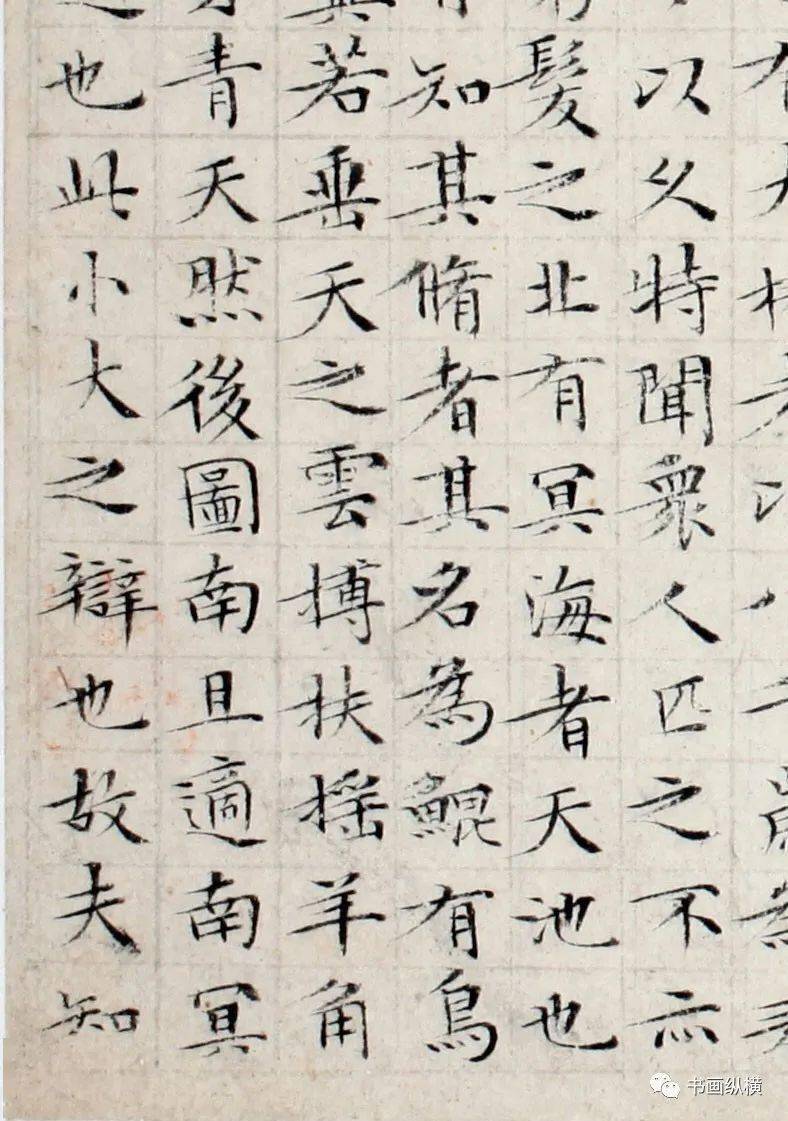 以久特聞衆人匹之不亦
髮之北有冥海者天池也
知其脩者其名為鯤有鳥
若垂天之雲搏扶搖羊角
青天然後圖南且適南冥
也此小大之辯也故夫知
书画纵横